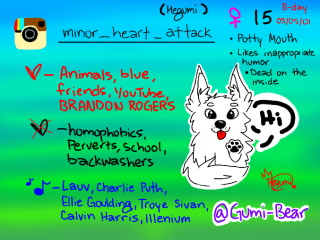 (Megumi)
minor_heart_attack
15
B-day
05/05/01
• Potty Mouth
• Likes inappropriate humor
• Dead on the inside
- Animals, blue,
friends, YouTube,
BRANDON ROGERS
Hi
- homophobics,
Perverts, school,
backwashers
- Lauv, Charlie Puth,
Ellie Goulding, Troye Sivan,
Calvin Harris, Illenium
@Gumi-Bear